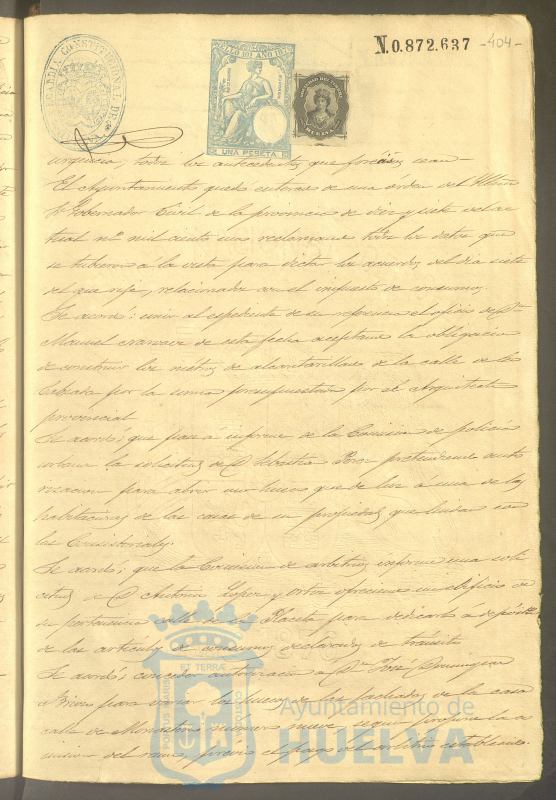 N.0.872.637 -404-
UNA PESETA
urgencia, todos los antecedentes que forman
El Ayuntamiento quedó enterado de una órden del Yltmo
Sr Gobernador Civil de la provincia de diez y siete del ac
tual nº mil ciento uno reclamando todos los datos que
se tubieron á la vista para dictar los acuerdos del dia siete
del que rije, relacionados con el impuesto de consumos.
Se acordó: unir al espediente de su referencia el oficio de Dn
Manuel de esta fecha aceptando la obligacion
de construir los metros de alcantarillas de la calle de la
Calzada por la suma presupuestada por el Arquitecto
provincial
Se acordó: que pase á informe de la Comision de policia
urbana la solicitud de D. Sebastian pretendiendo auto
rizacion para abrir un hueco que dé luz á una de las
habitaciones de las casas de su propiedad que lindan con
las Consistoriales.
Se acordó: que la Comision de arbitrios informe una soli
citud de D. Antonio Lopez y Ortiz ofreciendo un edificio de
su pertenencia calle de la Placeta para dedicarlo a depósito
de los artículos de consumos declarados de tránsito
Se acordó: conceder autorizacion a Dn José Dominguez
para variar los huecos de las fachadas de la casa
calle de Monasterio número nueve segun propone la co
mision del ramo, previo el pago del arbitrio establecido.
ET TERRÆ
Ayuntamiento de
HUELVA